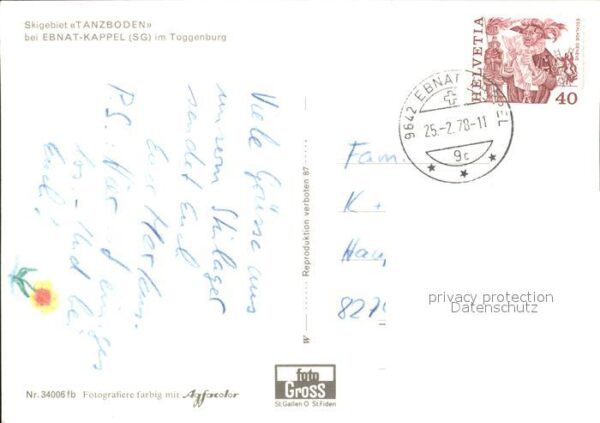 Skigebiet «TANZBODEN»
bei EBNAT-KAPPEL (SG) im Toggenburg
Viele Grüsse aus
unserm Skilager
sendet Euch
Euer Markus.
P.S.: Hier
los. - Und bei
Euch?
W Reproduktion verboten 87
HELVETIA
40
ESCALADE GENÈVE
9642 EBNAT-KAPPEL
25.-2.78-11
9c
Fam.
K
Hau
827
privacy protection
Datenschutz
Nr. 34006 fb Fotografiere farbig mit Agfacolor
foto
Gross
St.Gallen O St.Fiden